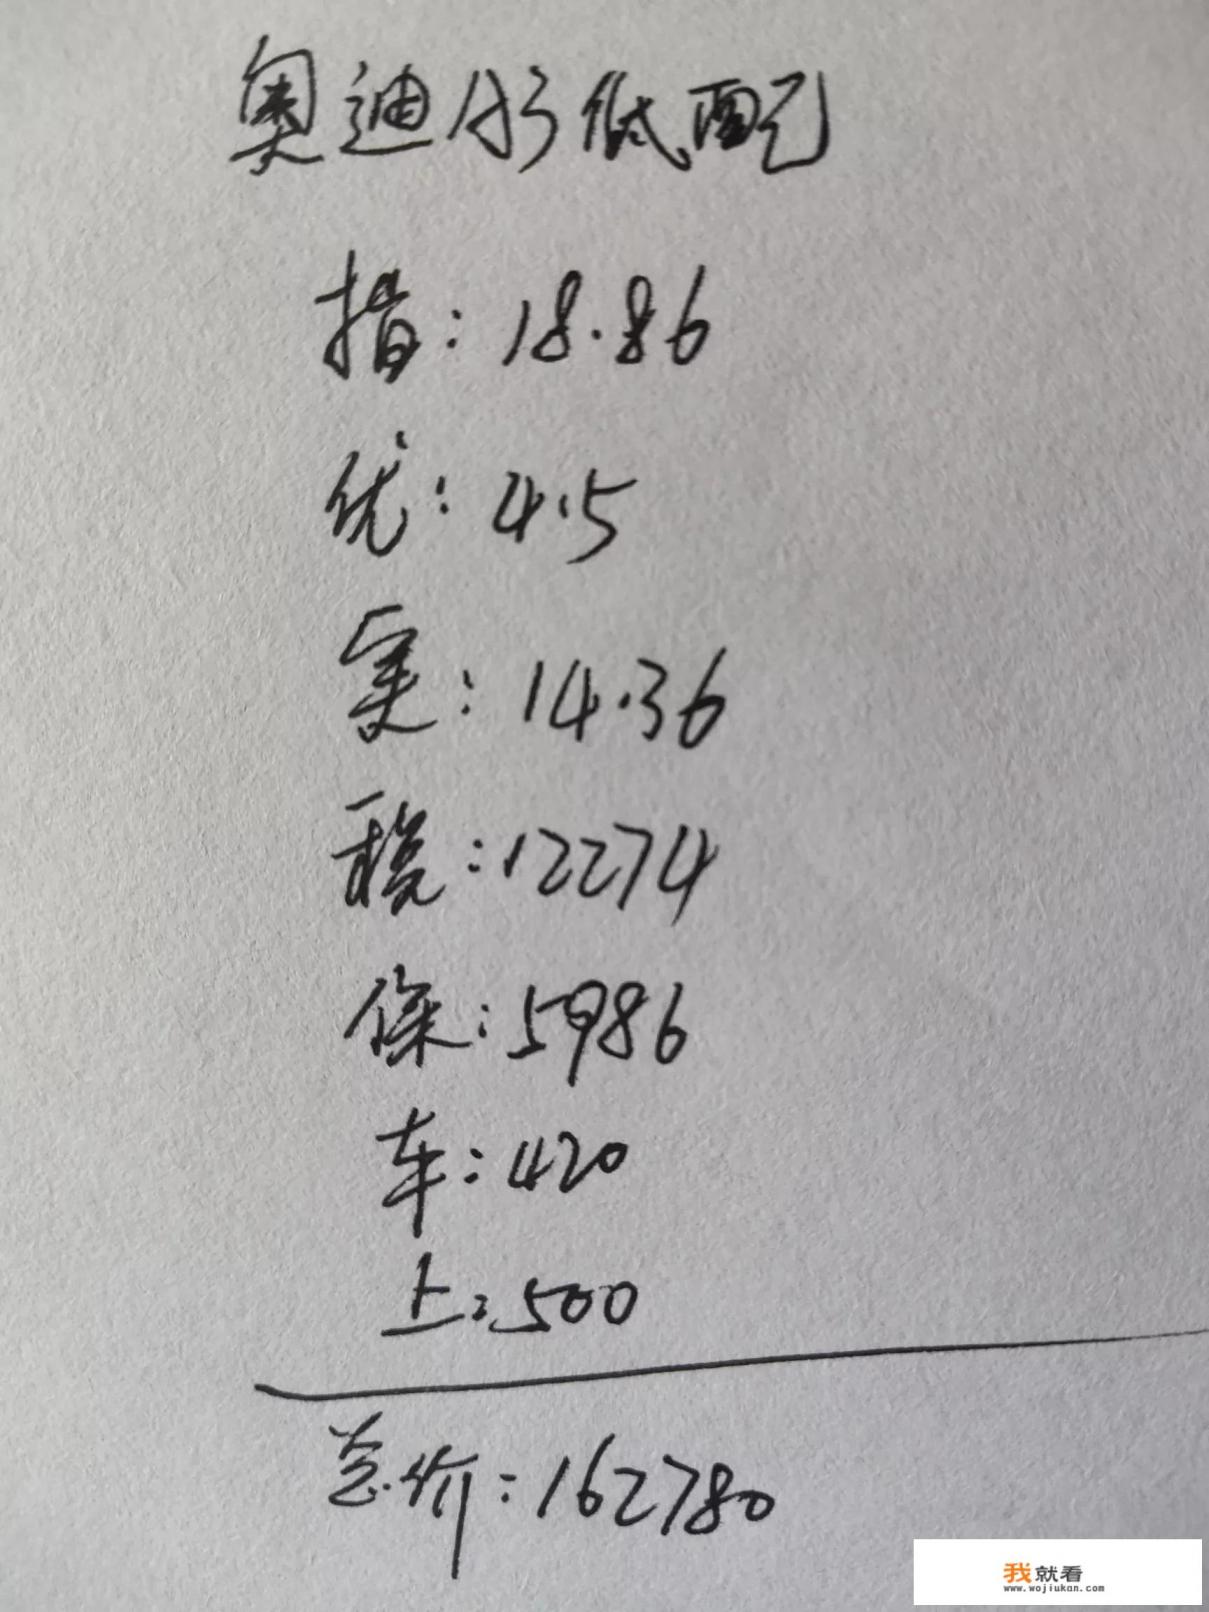 奥迪A3低配
指：18.86
优：4.5
实：14.36
税：12274
保：5986
车：420
上：500
总价：162780
我就看
www.wojiukan.com